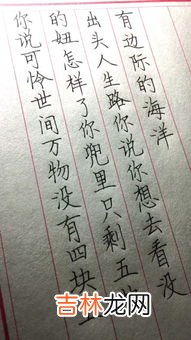 你说可怜世间万物没有四块
的妞怎样了你兜里只剩五
出头人生路你说你想去看没
有边际的海洋
吉林龙网